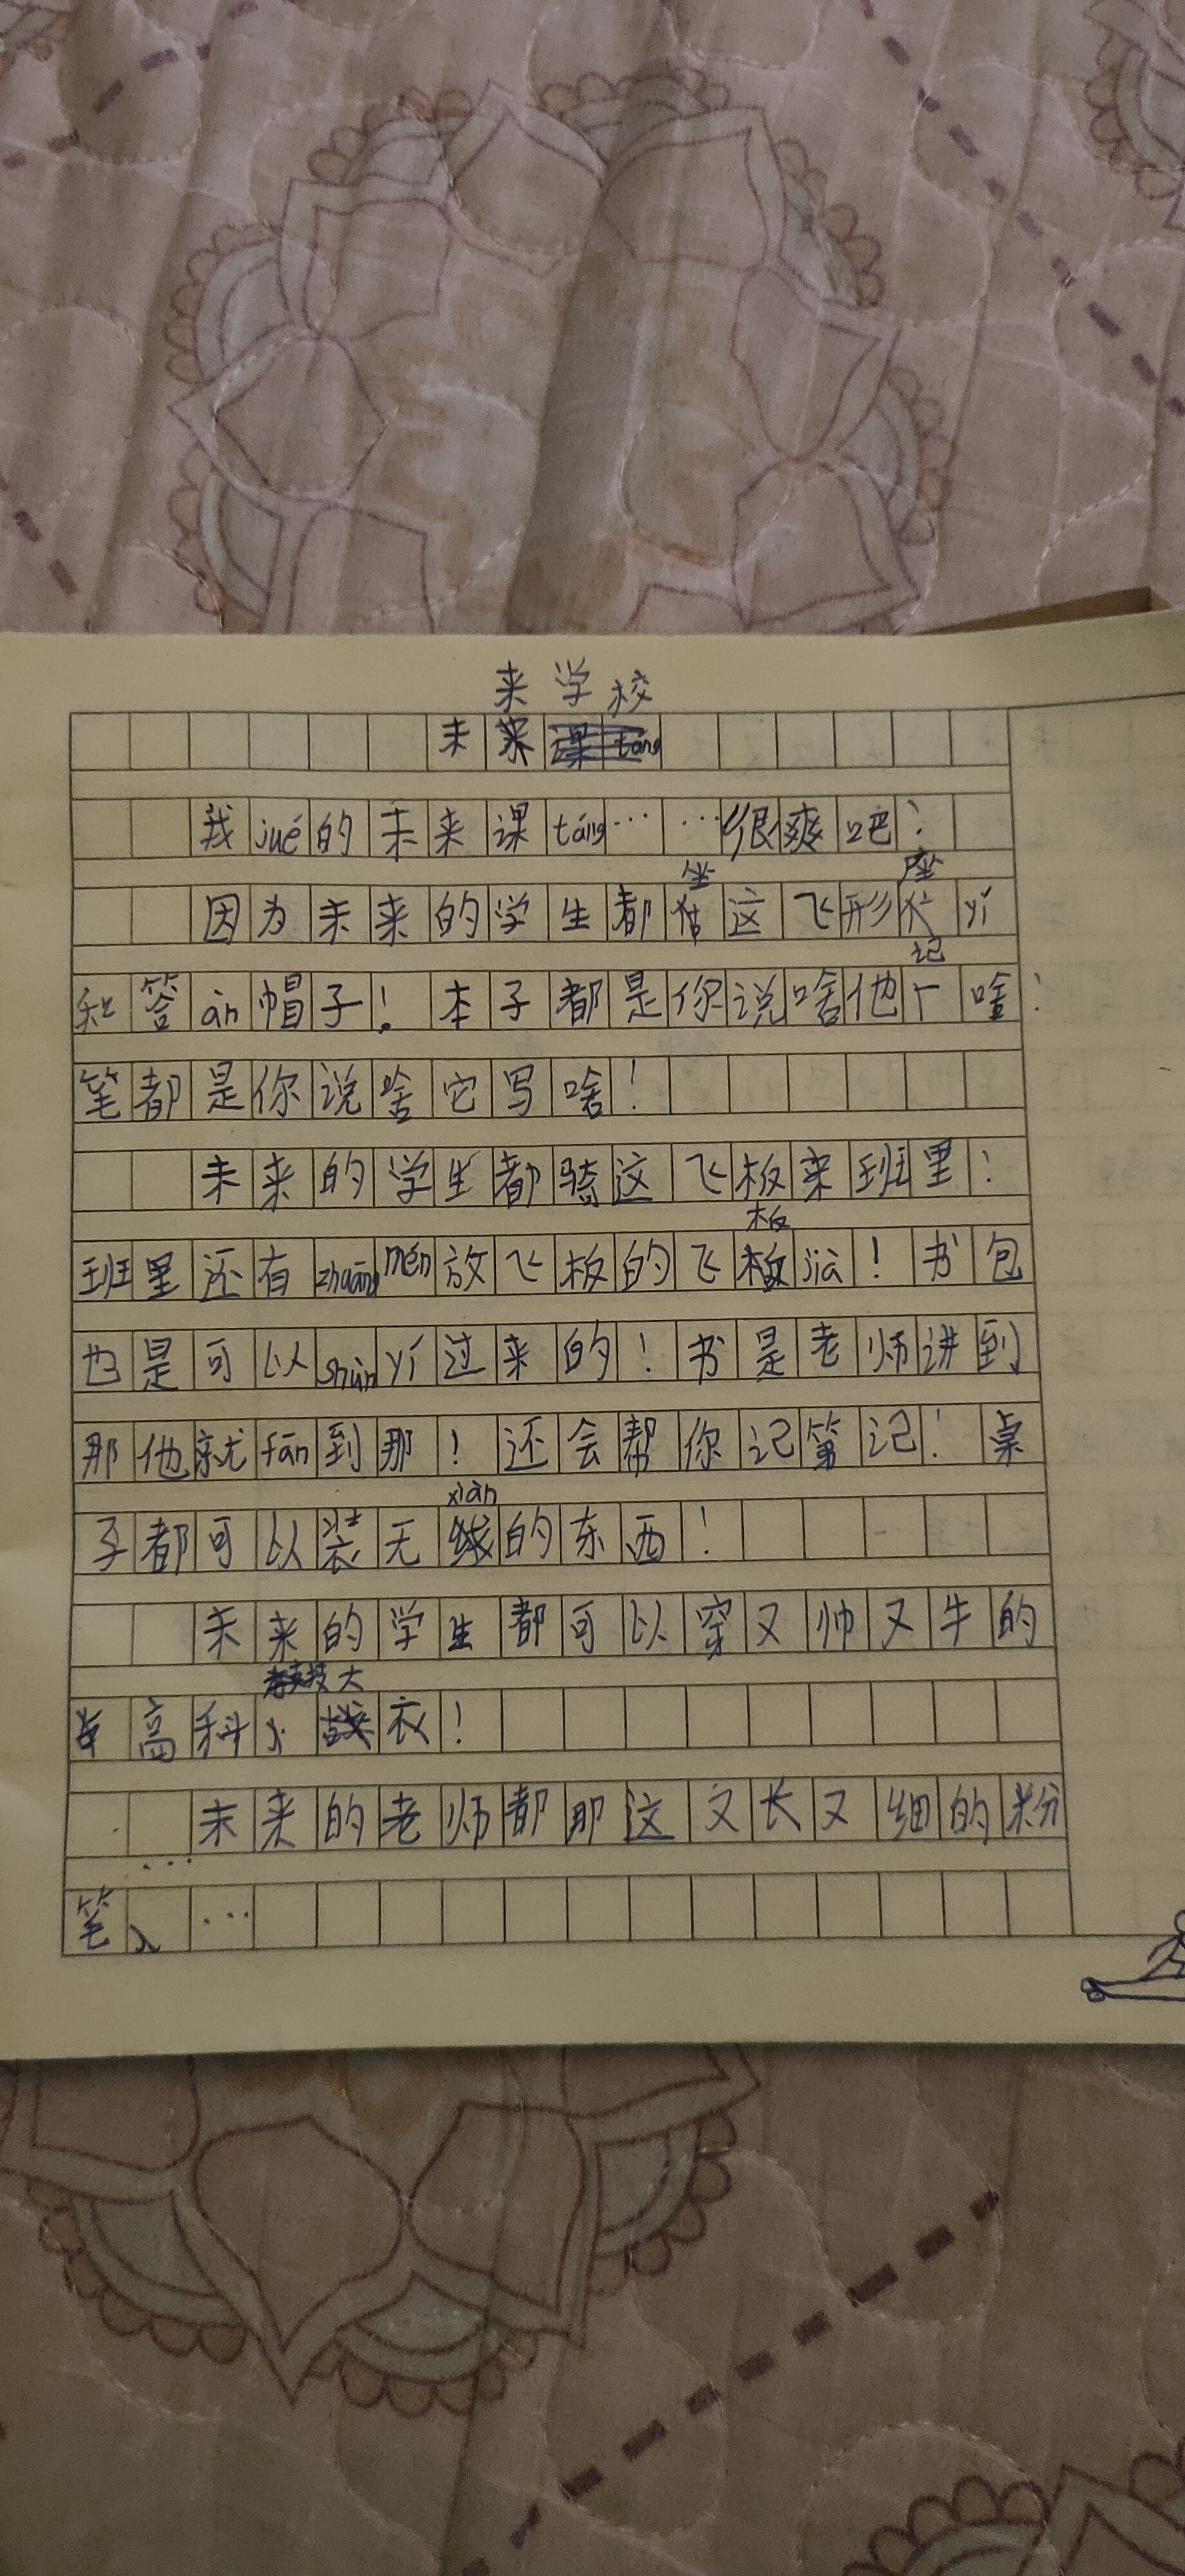 未来学校
我jué的未来课táng……很爽吧!
因为未来的学生都坐这飞形座yǐ
和答àn帽子!本子都是你说啥他记啥!
笔都是你说啥它写啥!
未来的学生都骑这飞板来班里!
班里还有zhuānmén放飞板的飞板jià!书包
也是可以shùnyí过来的!书是老师讲到
那他就fān到那!还会帮你记第记!桌
子都可以装无xiàn的东西!
未来的学生都可以穿又帅又牛的
高科技大衣!
未来的老师都那这又长又细的粉
笔、……